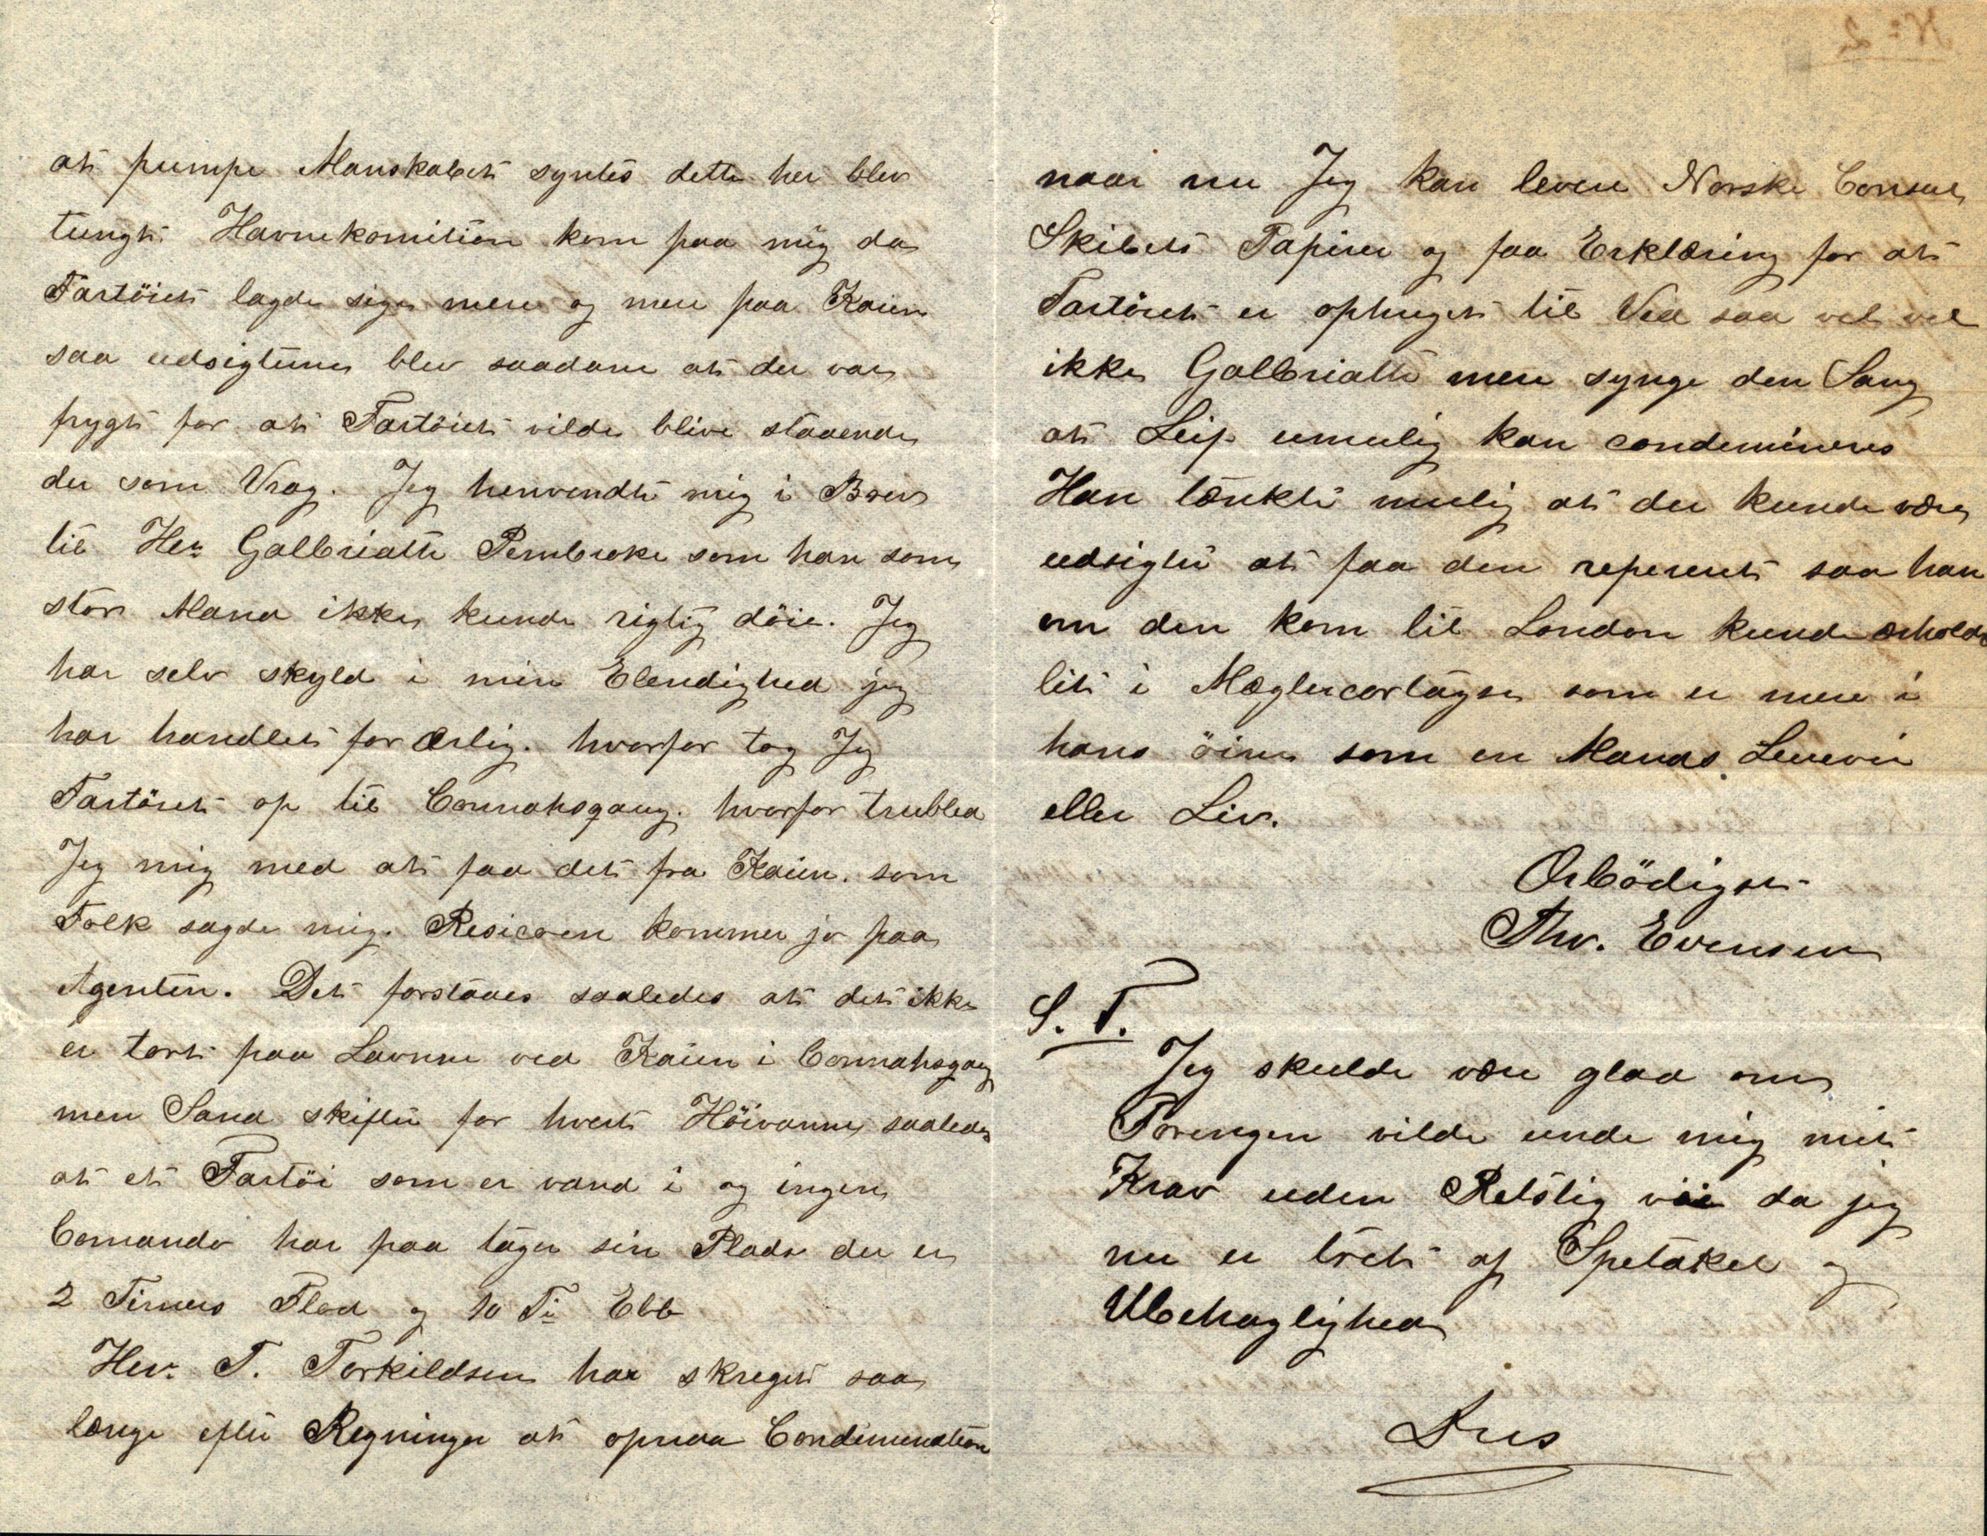 at pumpe Manskabet syntes dette her blev
tungt Havnekomitien kom paa mig da
Fartöiet lagde sig mere og mere paa Kaien
saa udsigterne blev saadane at der var
frygt for at Fartöiet vilde blive staaende
der som Vrag. Jeg henvendte mig i Brev
til Her Galbriatte Pembroke som han som
stor Mand ikke kunde rigtig döie. Jeg
har selv skyld i min Elendighed jeg
har handlet for ærlig. hvorfor tog Jeg
Fartöiet op til Connahsqauy. hvorfor trubled
Jeg mig med at faa det fra Kaien. som
Folk sagde mig. Resicoen kommer jo paa
Agenten. Det forstaaes saaledes at det ikke
er tört paa Lavvan ved Kaien i Connahsqauy
men Sand skifter for hvert Höivanne saaledes
at et Fartöi som er vand i og ingen
Comando har paa tager sin Plads der er
2 Timers Flod og 10 Ti Ebb
Her. T. Torkildsen har skreget saa
længe efter Regninger at opnaa Condemnation
No 2
naar nu Jeg kan levere Norske Consul
Skibets Papirer og faa Erklæring for at
Fartöiet er ophugget til Ved saa vel vel
ikke Galbriatte mere synge den Sang
at Leif umulig kan condemineres
Han tænkte mulig at der kunde være
udsigter at faa den reperert saa han
om den kom til London kunde erholde
lit i Mæglercortage som er mere i
hans öine som en Mands Levevei
eller Liv.
Ærbödigst
Thv. Evensen
S. T.
Jeg skulde være glad om
Forengen vilde unde mig mit
Krav uden Retslig vei da jeg
nu er træt af Spetakel og
Ubehaglighed
Dus